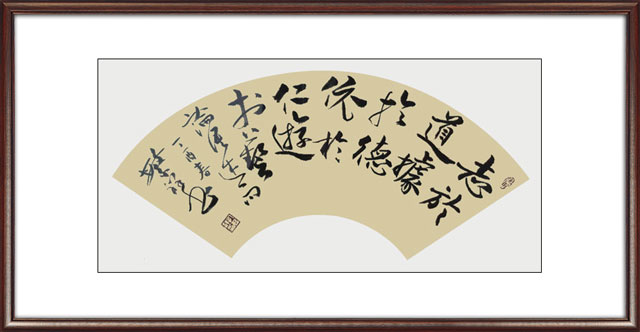 志於
道據
於德
依於
仁遊
於藝
論語
丁酉春